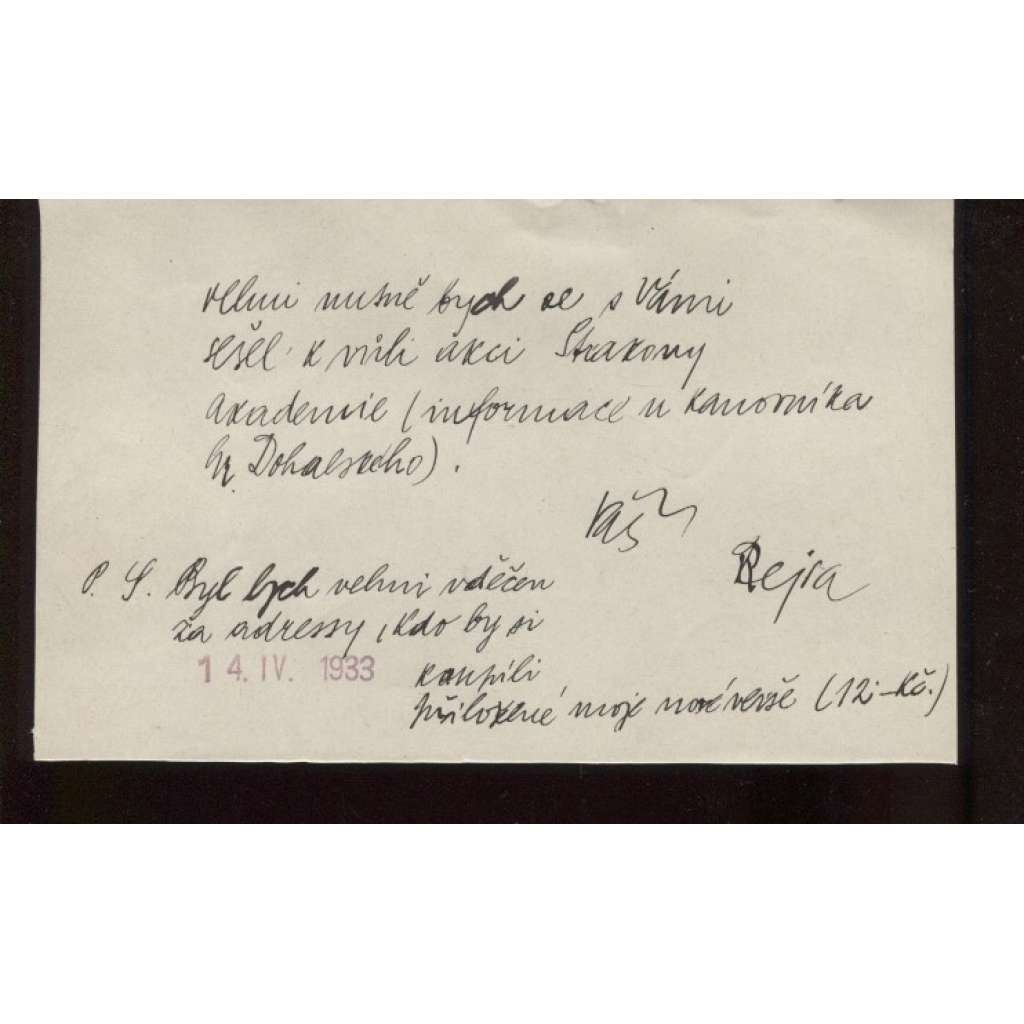 velmi nutně bych se s Vámi
sešel k vůli akci Strakovy
akademie (informace u kanovníka
hr. Dohalského).
Váš
Rejsa
P. S. Byl bych velmi vděčen
za adressy, kdo by si
14. IV. 1933
koupili
přiložené moje nové verše (12.– Kč.)